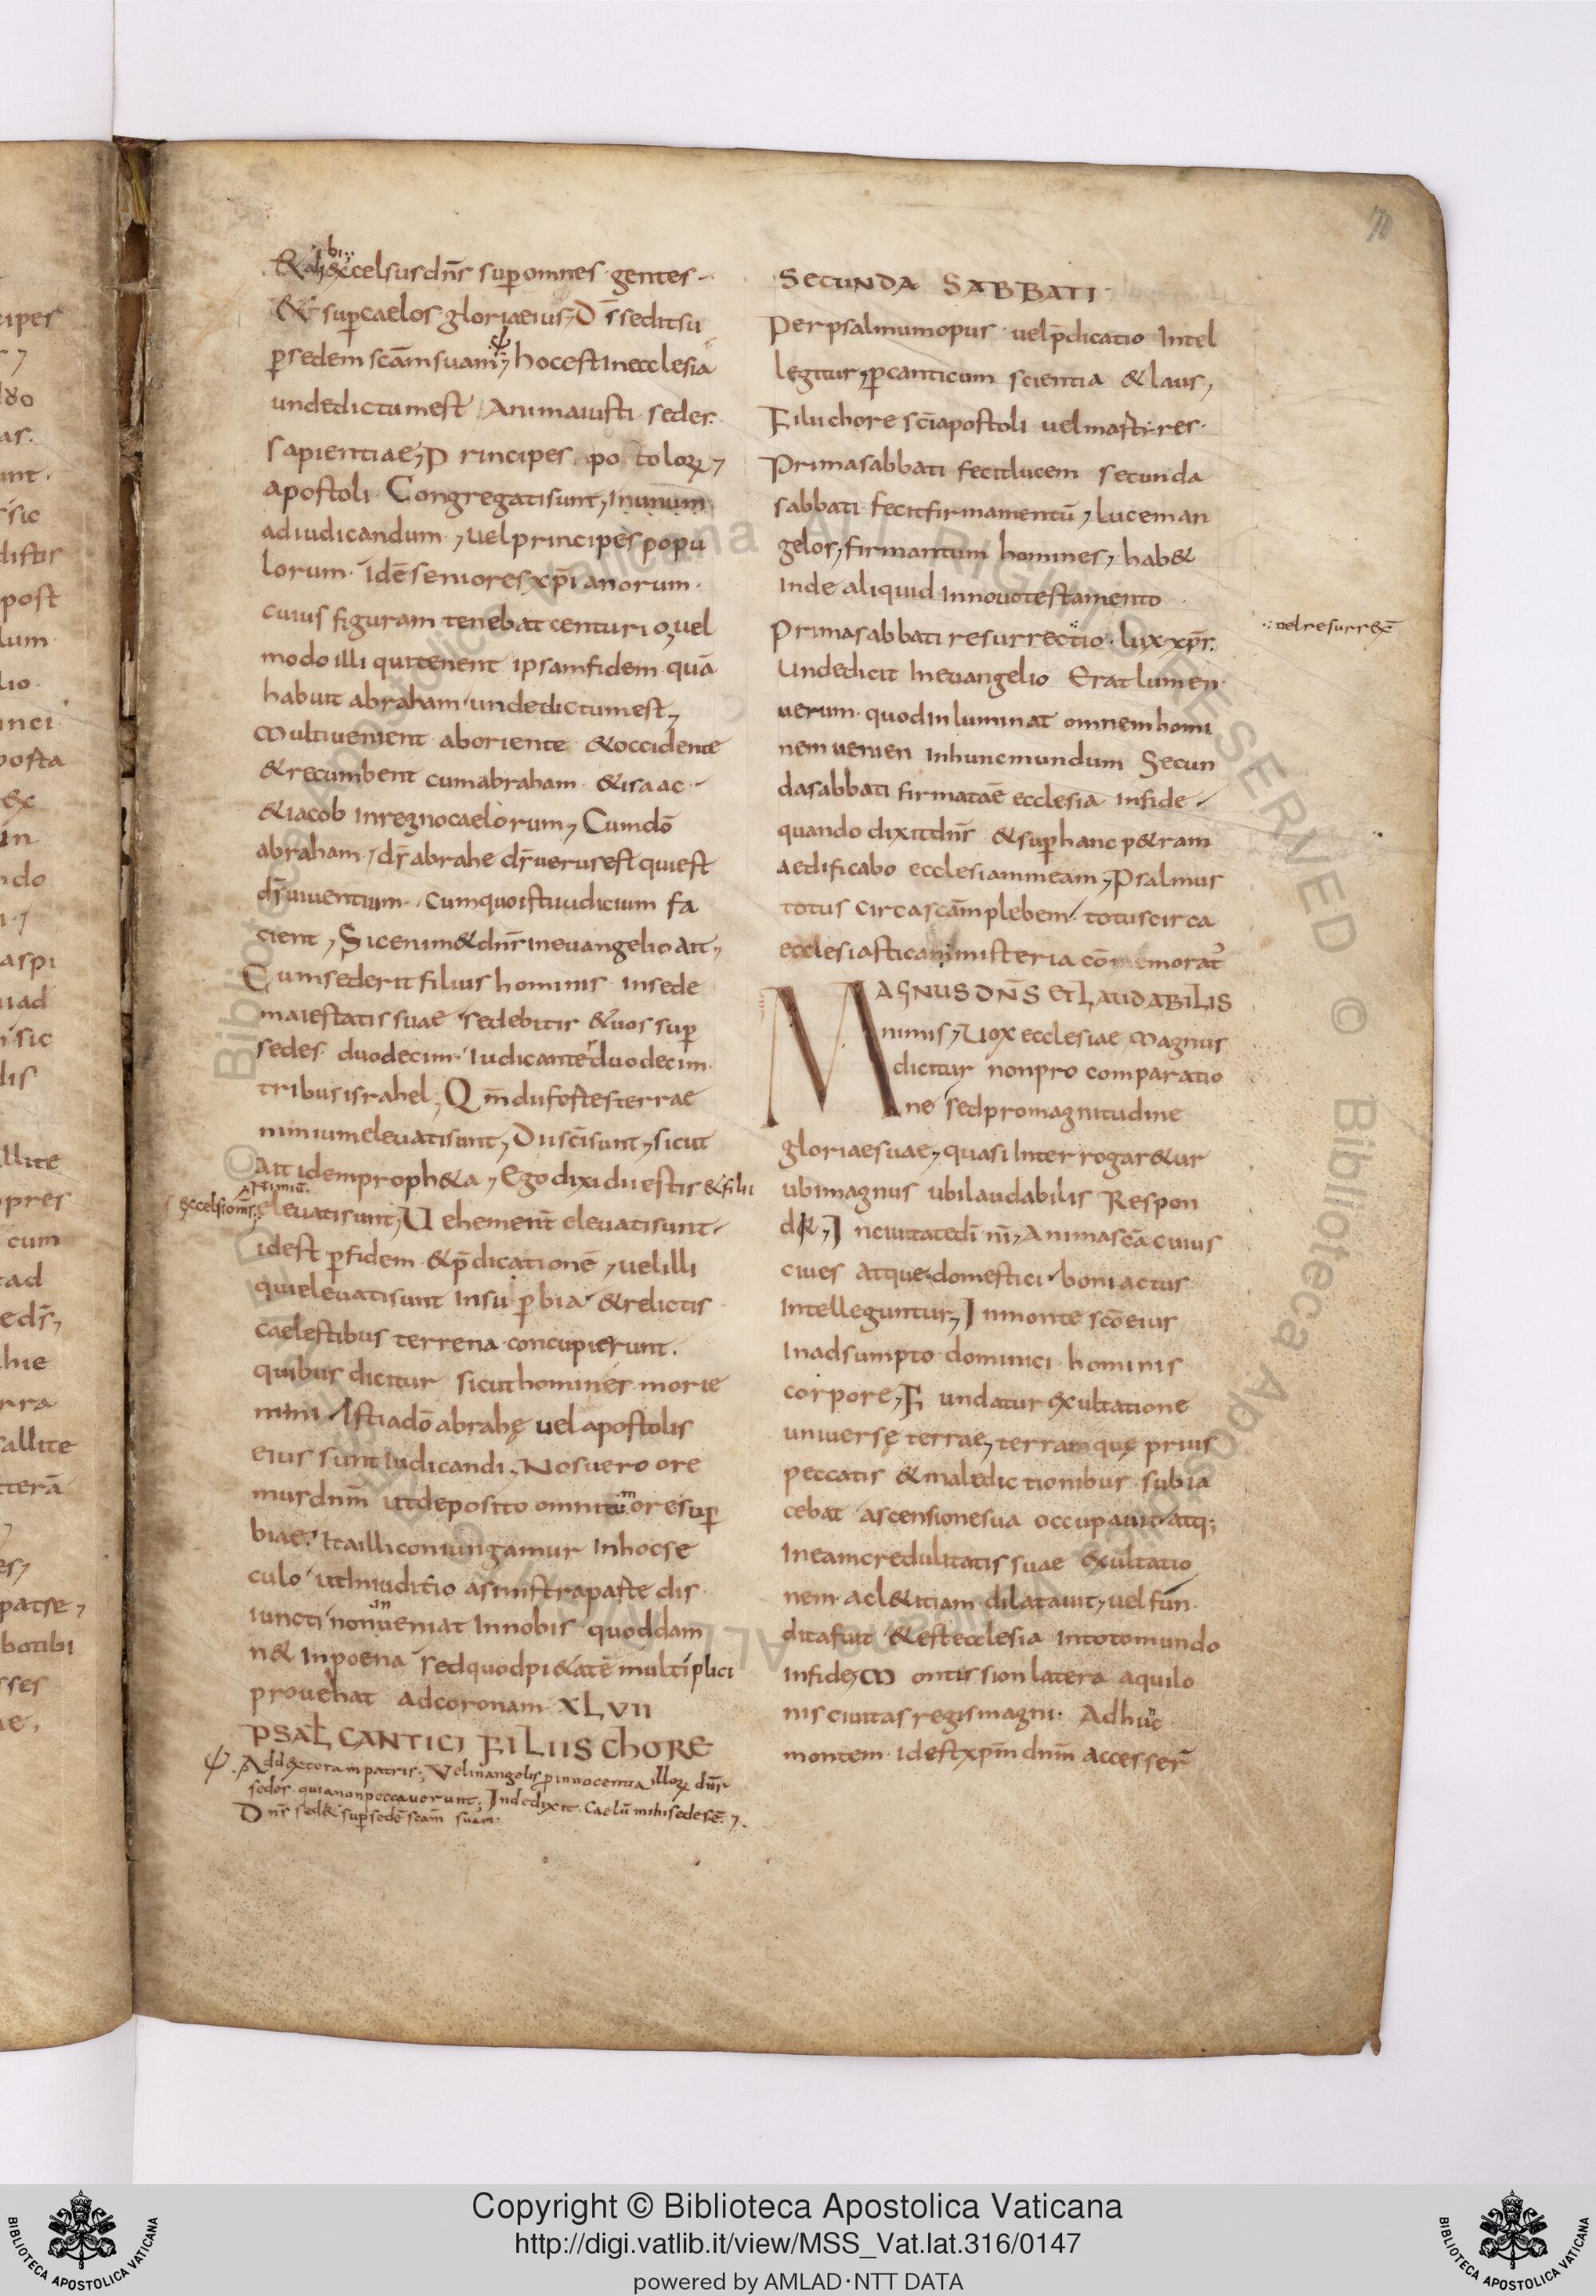 & alibi excelsus dn̄s sup omnes gentes
& sup caelos gloria eius, D̄s sedit su
p sedem scām suam, hoc est in ecclesia
unde dictum est Anima iusti sedes
sapientiae, Principes
apostoli Congregati sunt, in unum
ad iudicandum, uel principes popu
lorum. idē seniores xp̄ianorum.
cuius figuram tenebat centurio, uel
modo illi qui tenent ipsam fidem quā
habuit abraham unde dictum est,
Multi uenient ab oriente & occidente
& recumbent cum abraham & isaac
& iacob in regno caelorum, Cum dō
abraham, ds̄ abrahe ds̄ uerus est qui est
ds̄ uiuentium. Cum quo isti iudicium fa
cient, Sic enim & dn̄s in euangelio ait,
Cum sederit filius hominis in sede
maiestatis suae sedebitis & uos sup
sedes duodecim. Iudicantes duodecim
tribus israhel, Qm̄ dii fortes terrae
nimium eleuati sunt, Dii sc̄i sunt, sicut
ait idem proph&a, Ego dixi dii estis & filii
excelsi om̄s Nimiū.
eleuati sunt, Uehement eleuati sunt
id est p fidem & p̄dicationē, uel illi
qui eleuati sunt in supbia & relictis
caelestibus terrena concupierunt.
quibus dicitur sicut homines morie
mini Isti a dō abrahę uel apostolis
eius sunt iudicandi, Nos uero ore
mus dnm̄ ut deposito omni tumore sup
biae. Ita illi coniungamur in hoc se
culo ut in iuditio a sinistra parte dis
iuncti non ueniat in nobis quod dam
n& in poena sed quod pi&atē multiplici
prouehat ad coronam XLVII
PSAL CANTICI FILIIS CHORE
Ad dexteram patris; Vel in angelis p innocentia illoꝝ dn̄s
sedes. quia non peccauerunt; Inde dixit. Caelū mihi sedes ē.
Dn̄s sed& sup sedē scam̄ suam.
SECUNDA SABBATI
Per psalmum opus uel p̄dicatio Intel
legitur, p canticum scientia & laus,
Filii chore sc̄i apostoli uel martires.
Prima sabbati fecit lucem secunda
sabbati fecit firmamentū, lucem an
gelos, firmamtum homines, hab&
inde aliquid in nouo testamento
Prima sabbati resurrectio. lux xp̄s.
uel resurrex̄
Unde dicit In euangelio Erat lumen
uerum quod inluminat omnem homi
nem uenien in hunc mundum Secun
da sabbati firmata ē ecclesia in fide
quando dixit dn̄s & sup hanc p&ram
aedificabo ecclesiam meam, Psalmus
totus circa scām plebem. totus circa
ecclesiastica misteria cōmemorat̉
MAGNUS DN̄S ET LAUDABILIS
nimis, Uox ecclesiae Magnus
dicitur non pro comparatio
ne sed pro magnitudine
gloriae suae, quasi Interrogar&ur
ubi magnus ubi laudabilis Respon
d&, In ciuitate dī nī, Anima scā cuius
ciues atque domestici boni actus
Intelleguntur, In monte scō eius
In adsumpto dominici hominis
corpore, Fundatur exultatione
uniuersę terrae, terram quę prius
peccatis & maledictionibus subia
cebat ascensione sua occupauit atq;
In eam credulitatis suae exultatio
nem ac l&itiam dilatauit, uel fun
dita fuit & est ecclesia in toto mundo
in fide, Montis sion latera aquilo
nis ciuitas regis magni. Ad hunc
montem id est xpm̄ dnm̄ accesser̄
Copyright © Biblioteca Apostolica Vaticana
http://digi.vatlib.it/view/MSS_Vat.lat.316/0147
powered by AMLAD·NTT DATA
BIBLIOTECA APOSTOLICA VATICANA
BIBLIOTECA APOSTOLICA VATICANA